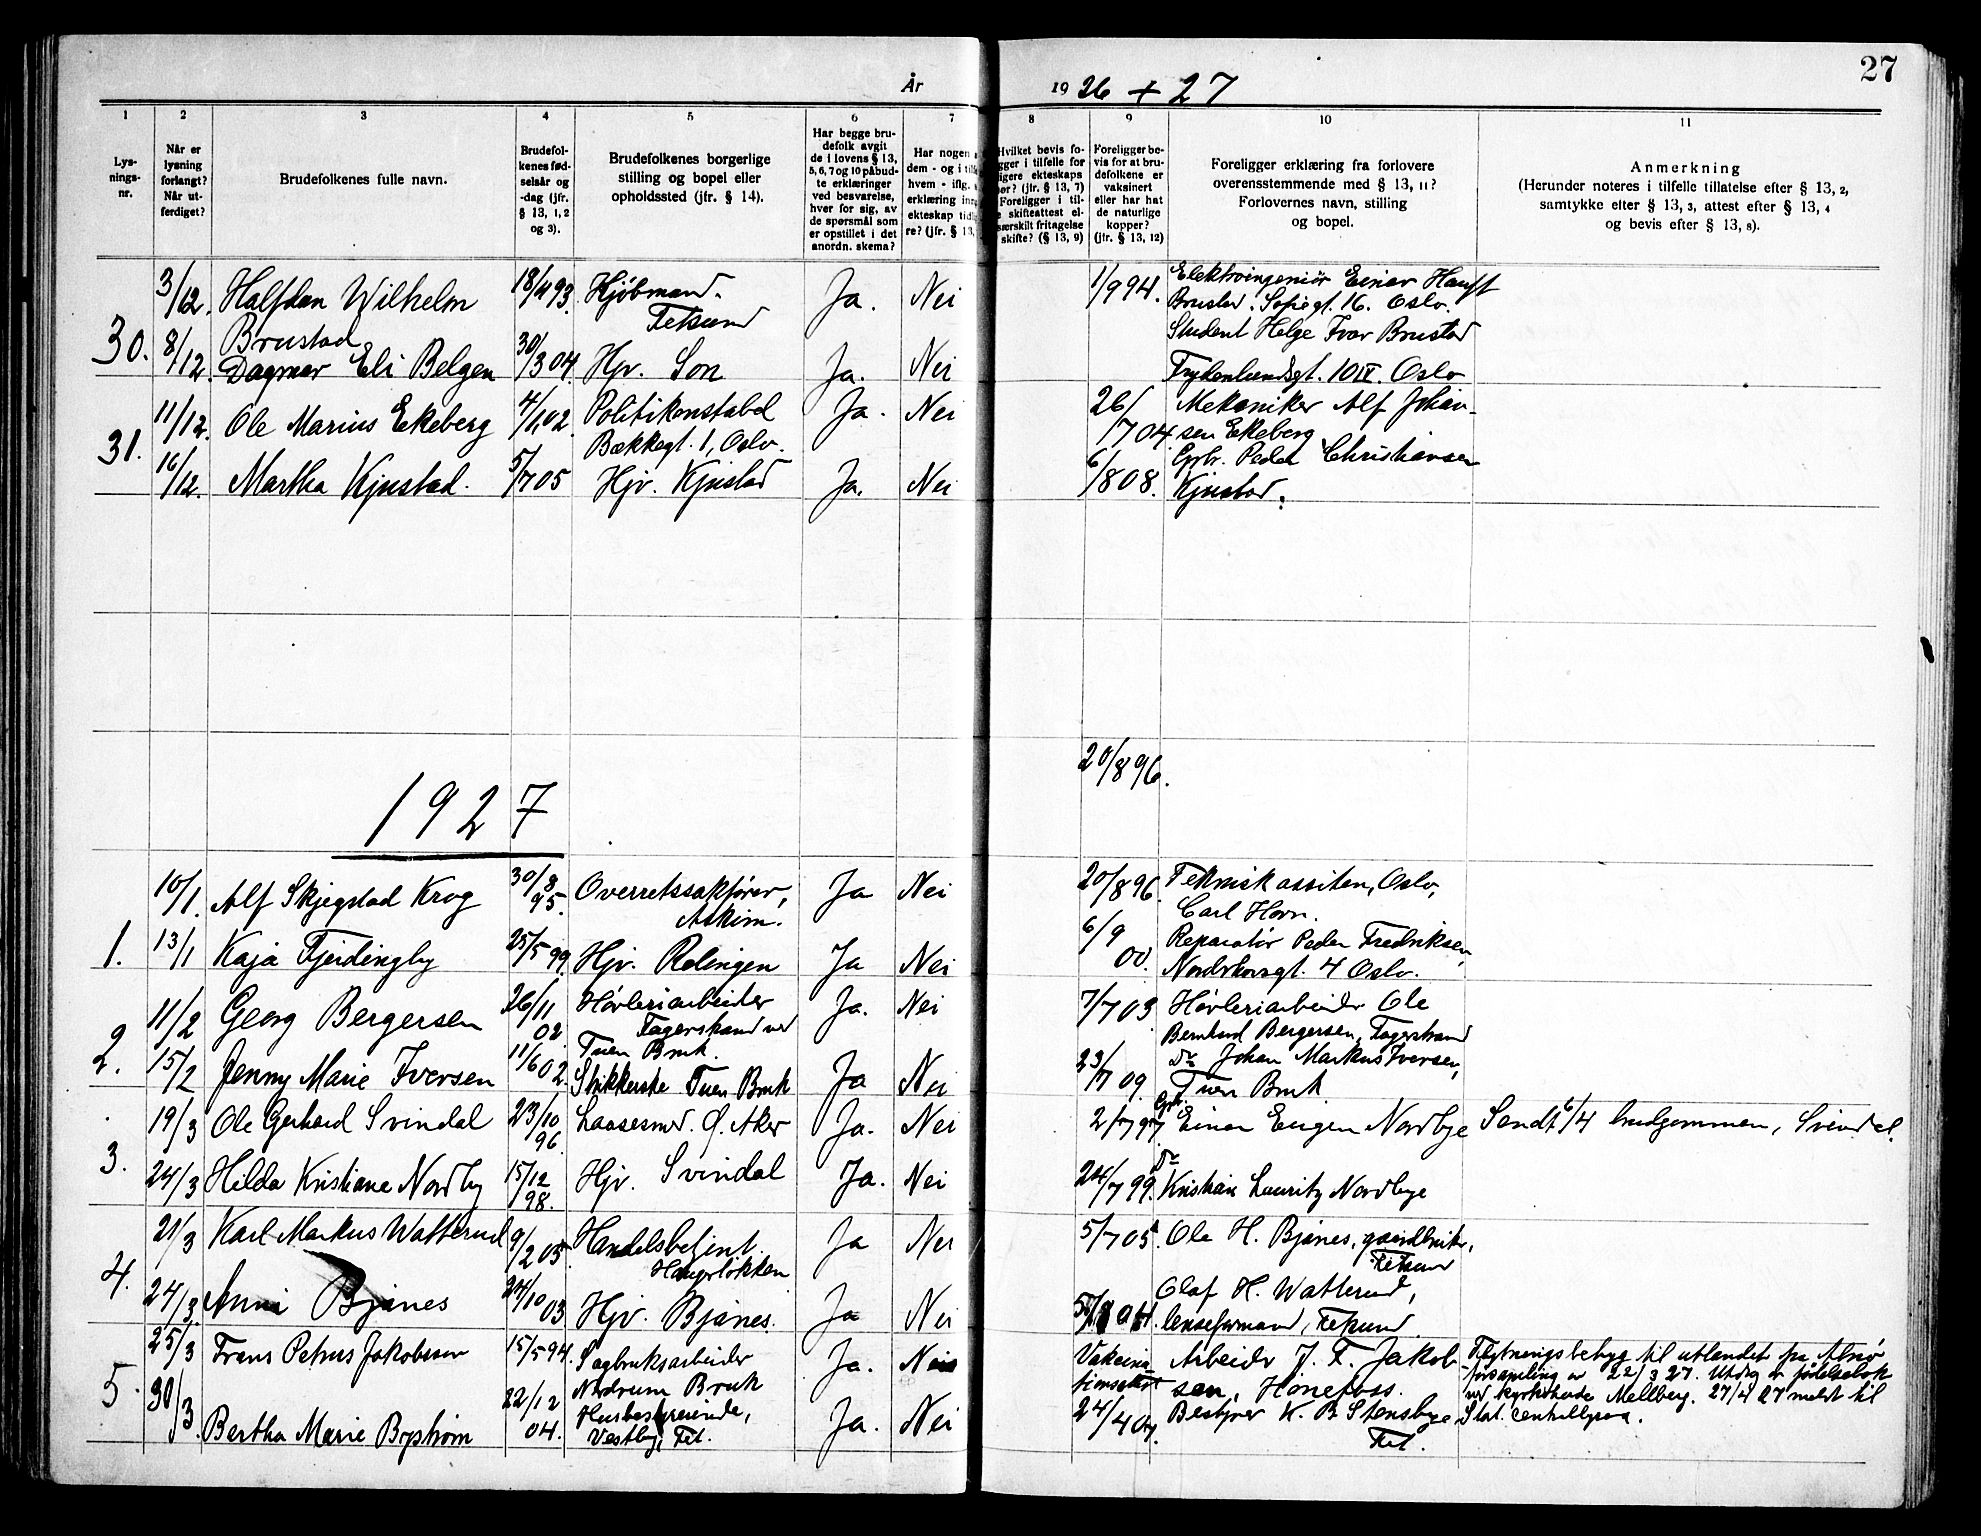 27
År 1926 + 27
1 2 3 4 5 6 7 8 9 10 11
Lys-
nings-
nr.
Når er
lysning
forlangt?
Når ut-
ferdiget?
Brudefolkenes fulle navn.
Brudefol-
kenes fød-
selsår og
-dag (jfr.
§ 13, 1, 2
og 3).
Brudefolkenes borgerlige
stilling og bopel eller
opholdssted (jfr. § 14).
Har begge bru-
defolk avgit
de i lovens § 13,
5, 6, 7 og 10 påbud-
te erklæringer
ved besvarelse,
hver for sig, av
de spørsmål som
er opstillet i det
anordn. skema?
Har nogen
dem - og i til
hvem - iflg.
erklæring inn
ekteskap tidl
re? (jfr. § 13,
Hvilket bevis fo-
gger i tilfelle for
ligere ekteskaps
hør? (jfr. § 13, 7)
Foreligger i til-
e skifteattest el-
særskilt fritagelse
skifte? (§ 13, 9)
Foreligger be-
vis for at bru-
defolkene er
vaksinert
eller har hat
de naturlige
kopper?
(jfr. § 13, 12)
Foreligger erklæring fra forlovere
overensstemmende med § 13, 11?
Forlovernes navn, stilling
og bopel.
Anmerkning
(Herunder noteres i tilfelle tillatelse efter § 13, 2,
samtykke efter § 13, 3, attest efter § 13, 4
og bevis efter § 13, 8).
3/12. Halfdan Wilhelm 18/11 93. Kjøbmand. Ja. Nei 1/9 94. Elektroingeniør Einar Hauft
Brustad Fetsund Brustad. Sofiegt. 16. Oslo.
30. 8/12. Dagmar Eli Belgen 30/3 04. Hjv. Son Ja. Nei Student Helge Ivar Brustad
Frydenlundsgt. 10 IV. Oslo
11/12. Ole Marius Ekeberg 4/1 02. Politikonstabel Ja. Nei 26/7 04. Mekaniker Alf Johan-
31. Bækkegt. 1, Oslo. sen Ekeberg
16/12. Martha Kjustad. 5/7 05 Hjv. Kjustad Ja. Nei 6/8 08. Grbr. Peder Christiansen
Kjustad.
20/8 96.
1927
10/1. Alf Skjegstad Krog 30/8 95. Overretssakfører, Ja Nei 20/8 96. Teknisk assiten, Oslo,
Askim. Carl Horn.
1. 13/1 Kaja Fjeldingby 25/5 99. Hjv. Rælingen Ja Nei 6/9 00. Reparatør Peder Fredriksen,
Nordskovsgt. 4 Oslo.
11/2 Georg Bergersen 26/11 02. Høvleriarbeider Ja. Nei 7/7 03 Høvleriarbeider Ole
Fagerstrand ved Bernhard Bergersen, Fagerstrand
2. Tuen Bruk.
15/2 Jenny Marie Iversen 11/6 02. Strikkerske Tuen Bruk Ja Nei 23/7 09. Do Johan Markus Iversen,
Tuen Bruk
19/3 Ole Gerhard Svindal 23/10 96. Laasesmed. Ø. Aker Ja. Nei 2/7 97 Grbr. Einar Eugen Nordbye Sendt 6/4 brudgommen, Svindal.
3. 24/3 Hilda Kristiane Nordby 15/12 98. Hjv. Svindal Ja. Nei 24/7 99. Do Kristian Lauritz Nordbye
21/3 Karl Markus Watterud 9/2 05 Handelsbetjent. Ja Nei 5/7 05. Ole H. Bjanes, gaardbruker,
Haugsløkken Fetsund
4. 24/3. Anni Bjanes 24/10 03 Hjv. Bjanes. Ja Nei Olaf H. Watterud,
lenseformand, Fetsund.
25/3 Frans Petrus Jakobsson 15/5 94. Sagbruksarbeider Ja. Nei Vakcina- Arbeider J. F. Jakob- Flytningsbetyg til utlandet fra Alnø
Nordrum Bruk tionsattest sen, Hønefoss. församling av 22/3 27. Utdrag av födelsebok
5. ved kyrkoherde Mellberg. 27/4 27 meldt til
30/3. Bertha Marie Bystrøm 22/12 04. Husbestyrerinde, Ja. Nei 24/4 04. Bestyrer K. B. Stensbye Stat. centralbyraa.
Vestby, Fet. Fet.